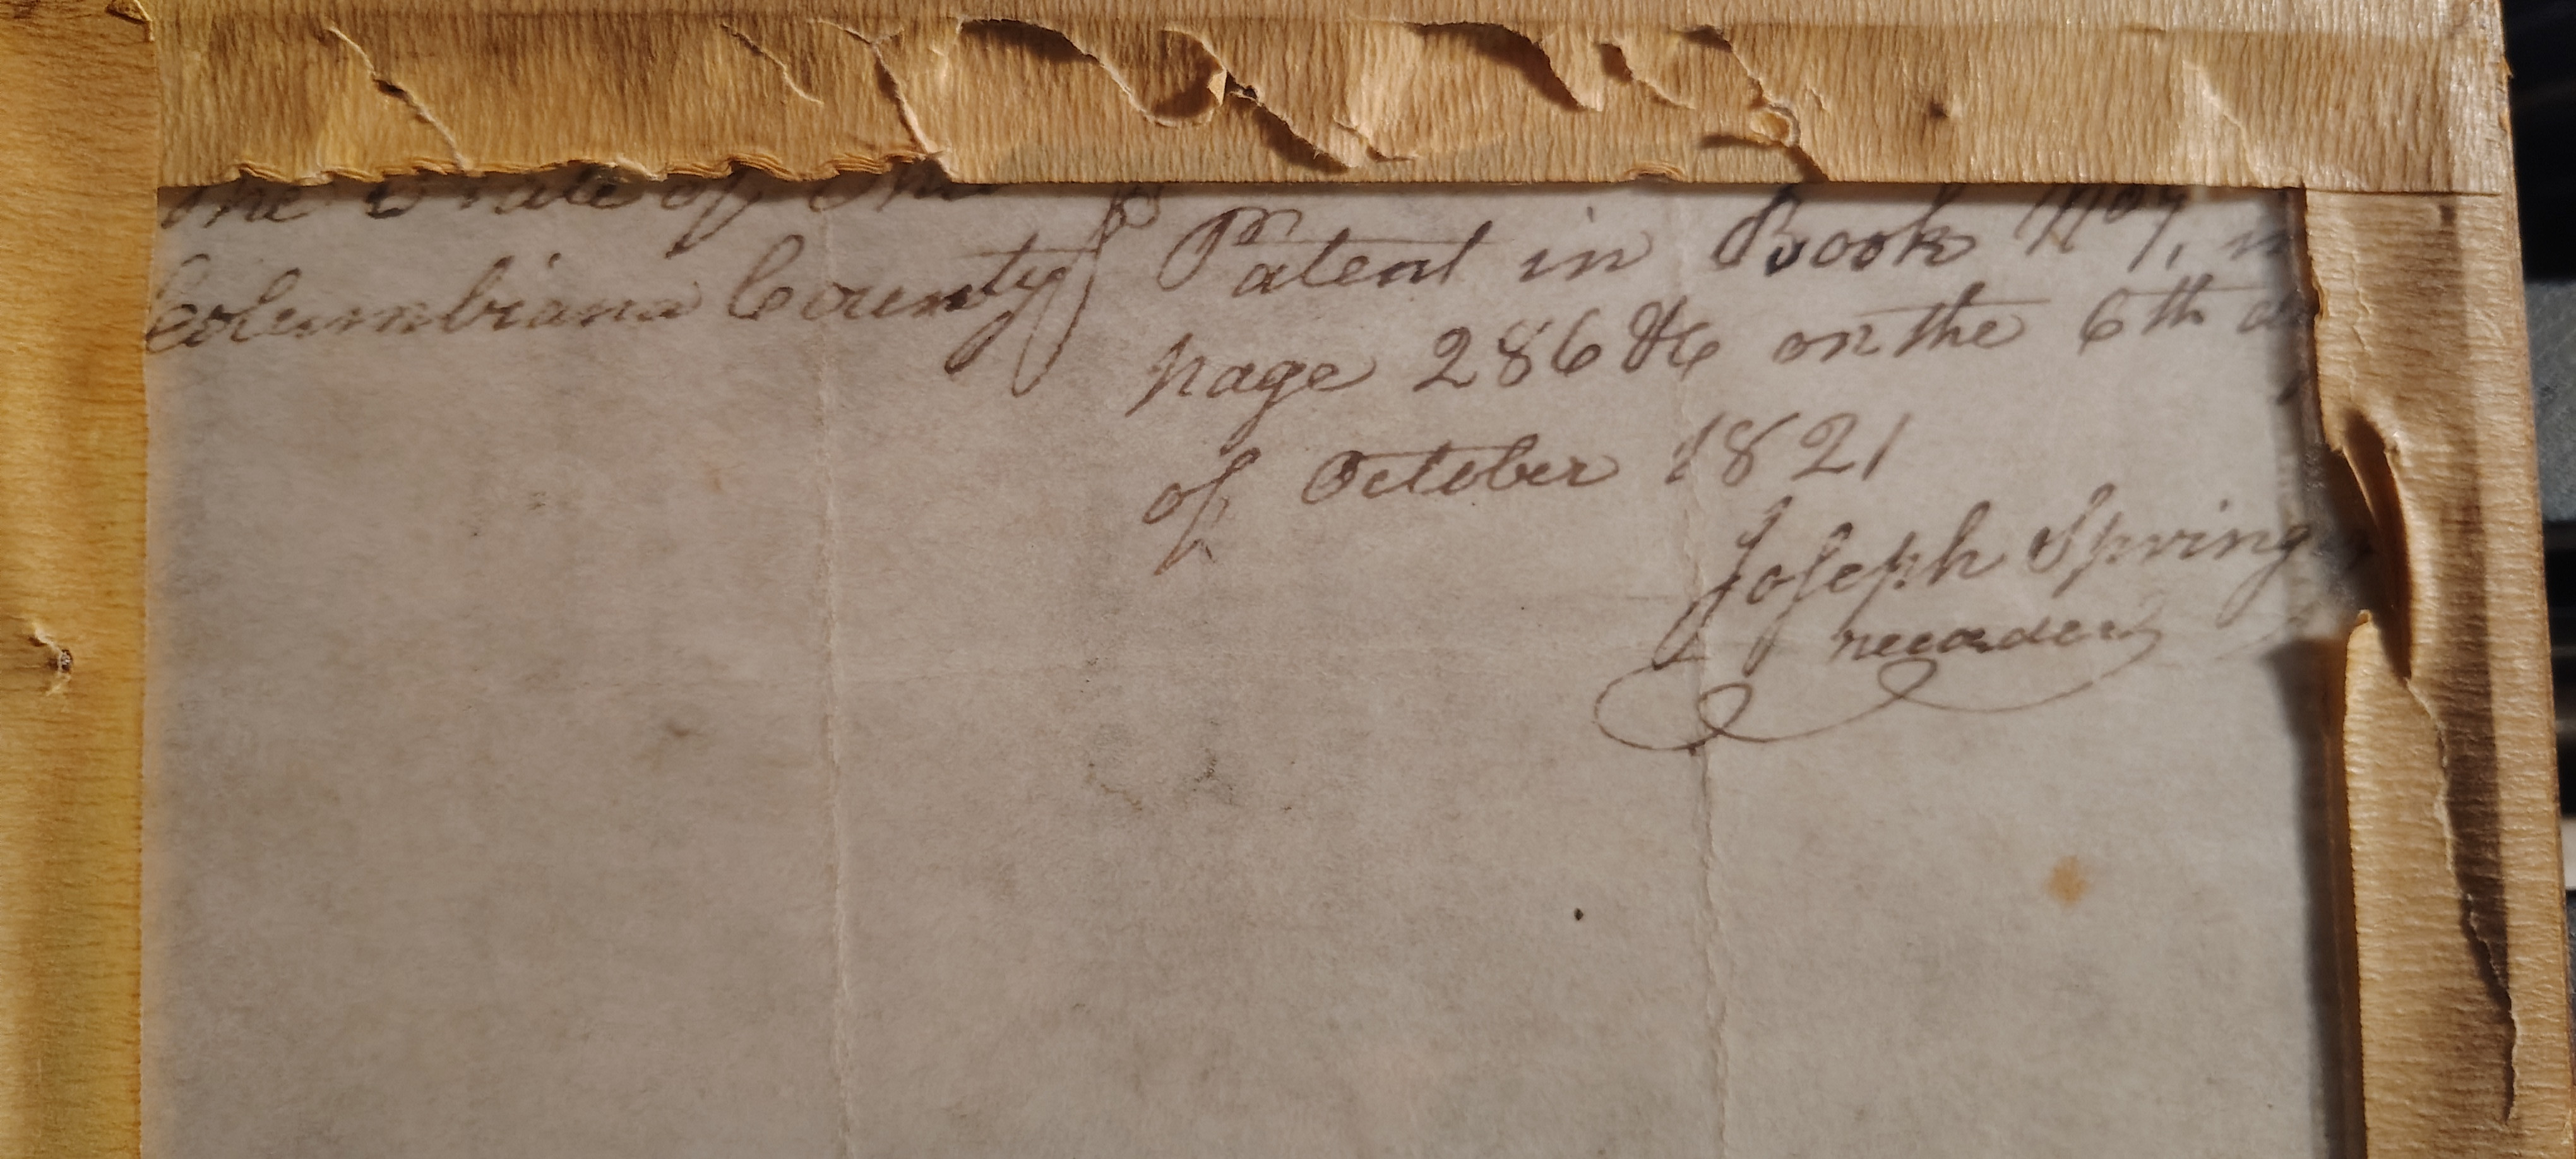 the State of
Columbiana County
Patent in Book No 7,
page 286 &c on the 6th
of October 1821
Joseph Spring
recorder